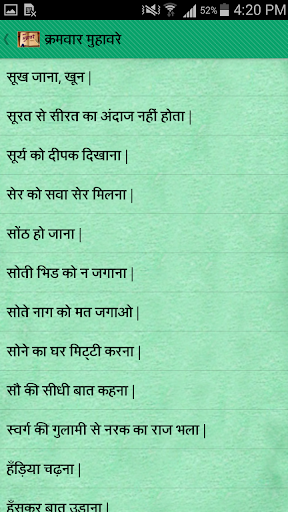 52% 4:20 PM
क्रमवार मुहावरे
सूख जाना, खून |
सूरत से सीरत का अंदाज नहीं होता |
सूर्य को दीपक दिखाना |
सेर को सवा सेर मिलना |
सोंठ हो जाना |
सोती भिड को न जगाना |
सोते नाग को मत जगाओ |
सोने का घर मिट्टी करना |
सौ की सीधी बात कहना |
स्वर्ग की गुलामी से नरक का राज भला |
हँड़िया चढ़ना |
हँसकर बात उड़ाना |